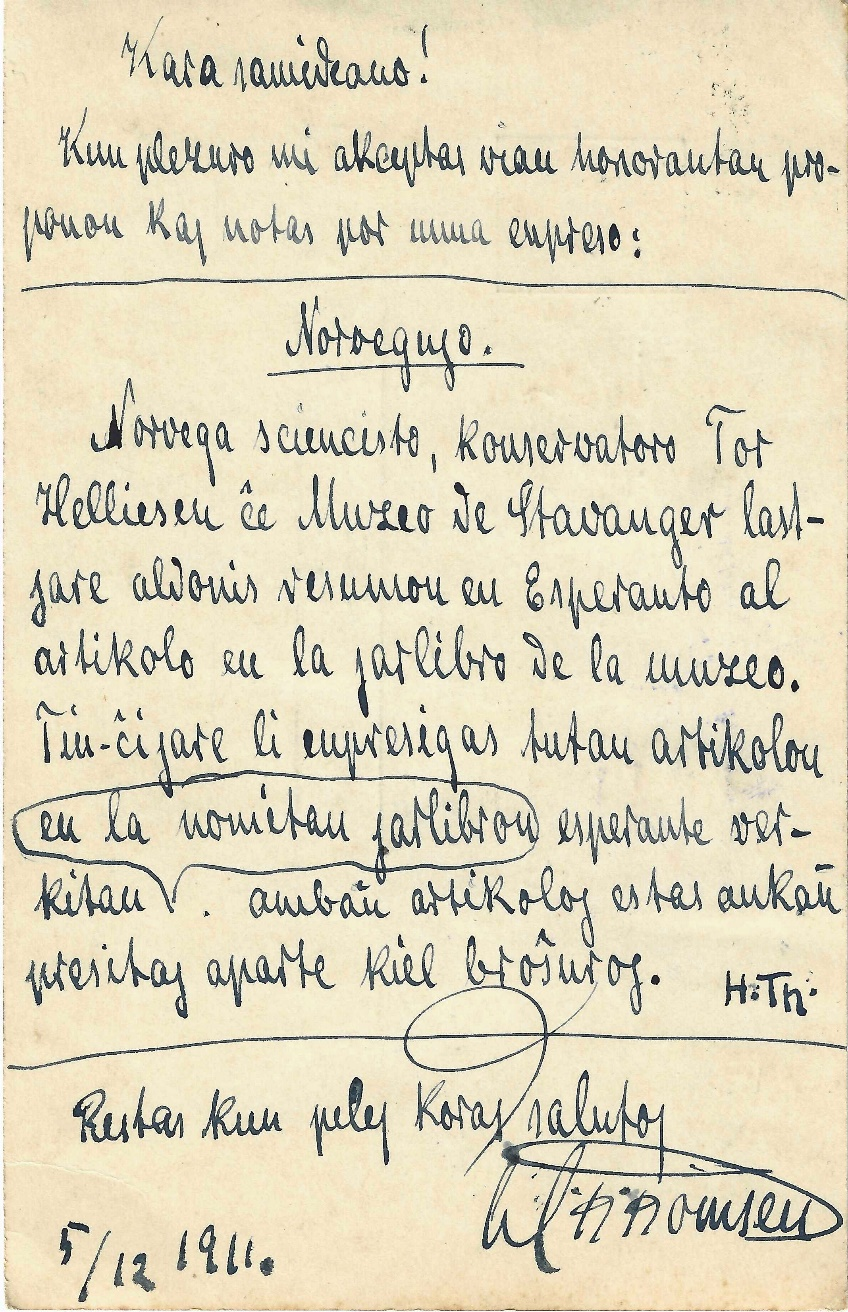 Kara samideano!
Kun plezuro mi akceptas vian honorantan pro-
ponon kaj notas por unua enpreso:
Norvegujo.
Norvega sciencisto, konservatoro Tor
Helliesen ĉe Muzeo de Stavanger last-
jare aldonis resumon en Esperanto al
artikolo en la jarlibro de la muzeo.
Tiu-ĉi jare li enpresigas tutan artikolon
en la nomitan jarlibron esperante ver-
kitan. ambaŭ artikoloj estas ankaŭ
presitaj aparte kiel broŝuroj. H.Th.
Restas kun plej koraj salutoj
5/12 1911.